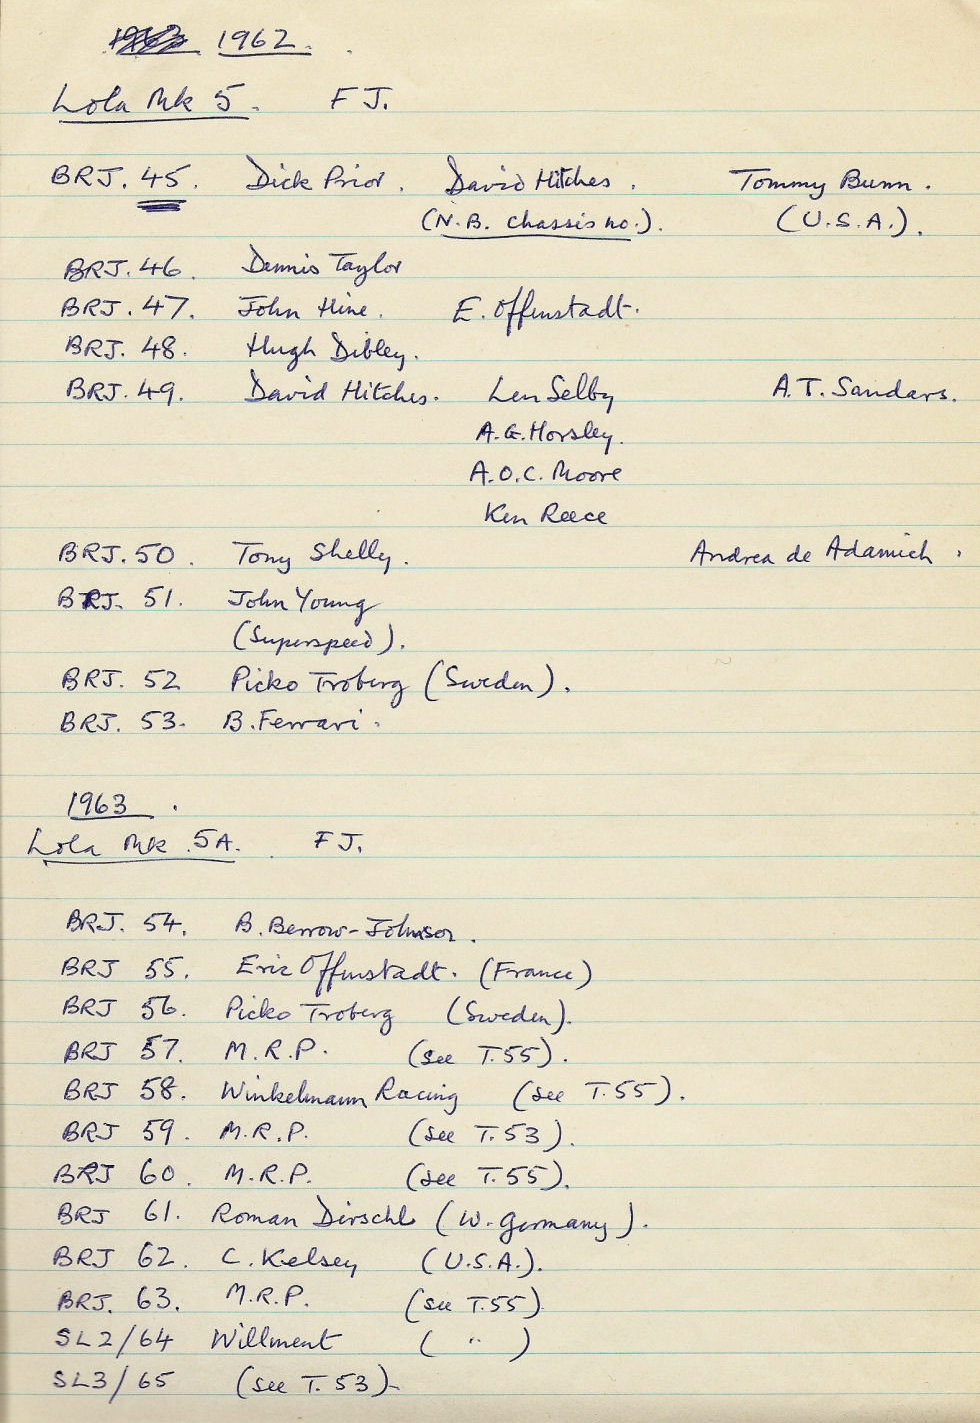 1962.
Lola Mk 5. F J.
BRJ. 45. Dick Prior. David Hitches. Tommy Bunn.
(N.B. chassis no.). (U.S.A.).
BRJ. 46. Dennis Taylor
BRJ. 47. John Hine. E. Offenstadt.
BRJ. 48. Hugh Dibley.
BRJ. 49. David Hitches. Len Selby A.T. Sandars.
A.G. Horsley.
A.O.C. Moore
Ken Reece
BRJ. 50. Tony Shelly. Andrea de Adamich.
BRJ. 51. John Young
(Superspeed).
BRJ. 52 Picko Troberg (Sweden).
BRJ. 53. B. Ferrari.
1963.
Lola Mk. 5A. F J.
BRJ. 54. B. Berrow-Johnson.
BRJ 55. Eric Offenstadt. (France)
BRJ 56. Picko Troberg (Sweden).
BRJ 57. M.R.P. (see T.55).
BRJ 58. Winkelmann Racing (see T.55).
BRJ 59. M.R.P. (see T.53).
BRJ 60. M.R.P. (see T.55).
BRJ 61. Roman Dirschl (W. Germany).
BRJ 62. C. Kelsey (U.S.A.).
BRJ. 63. M.R.P. (see T.55)
SL2/64 Willment ( " )
SL3/65 (see T. 53).